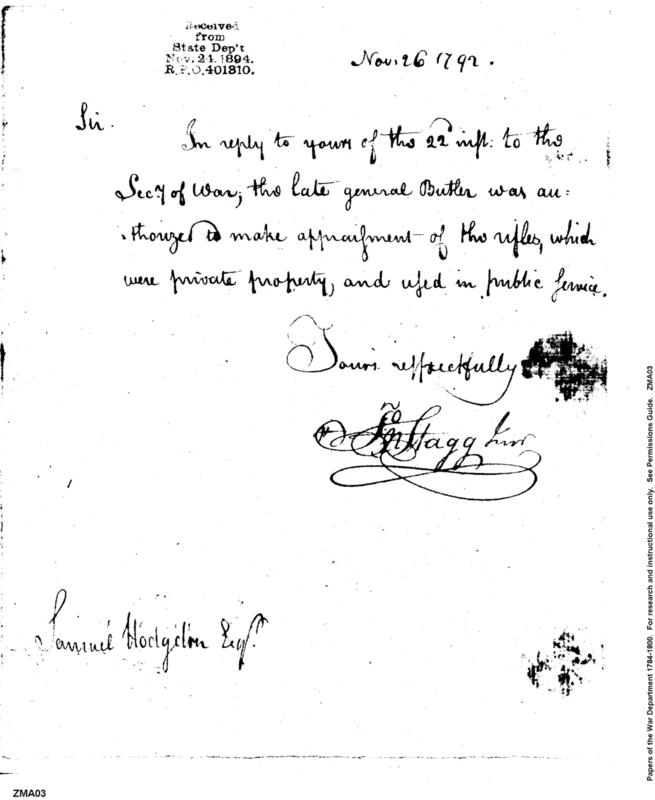 Received
from
State Dep't
Nov. 24. 1894.
R.P.O. 401310.
Nov. 26 1792.
Sir.
In reply to yours of the 22d inst: to the
Secy of War, the late general Butler was au=
=thorized to make appraisment of the rifles, which
were private property, and used in public service.
Yours respectfully
Jno Stagg Junr
Samuel Hodgdon Esqr.
Papers of the War Department 1784-1800. For research and instructional use only. See Permissions Guide. ZMA03
ZMA03